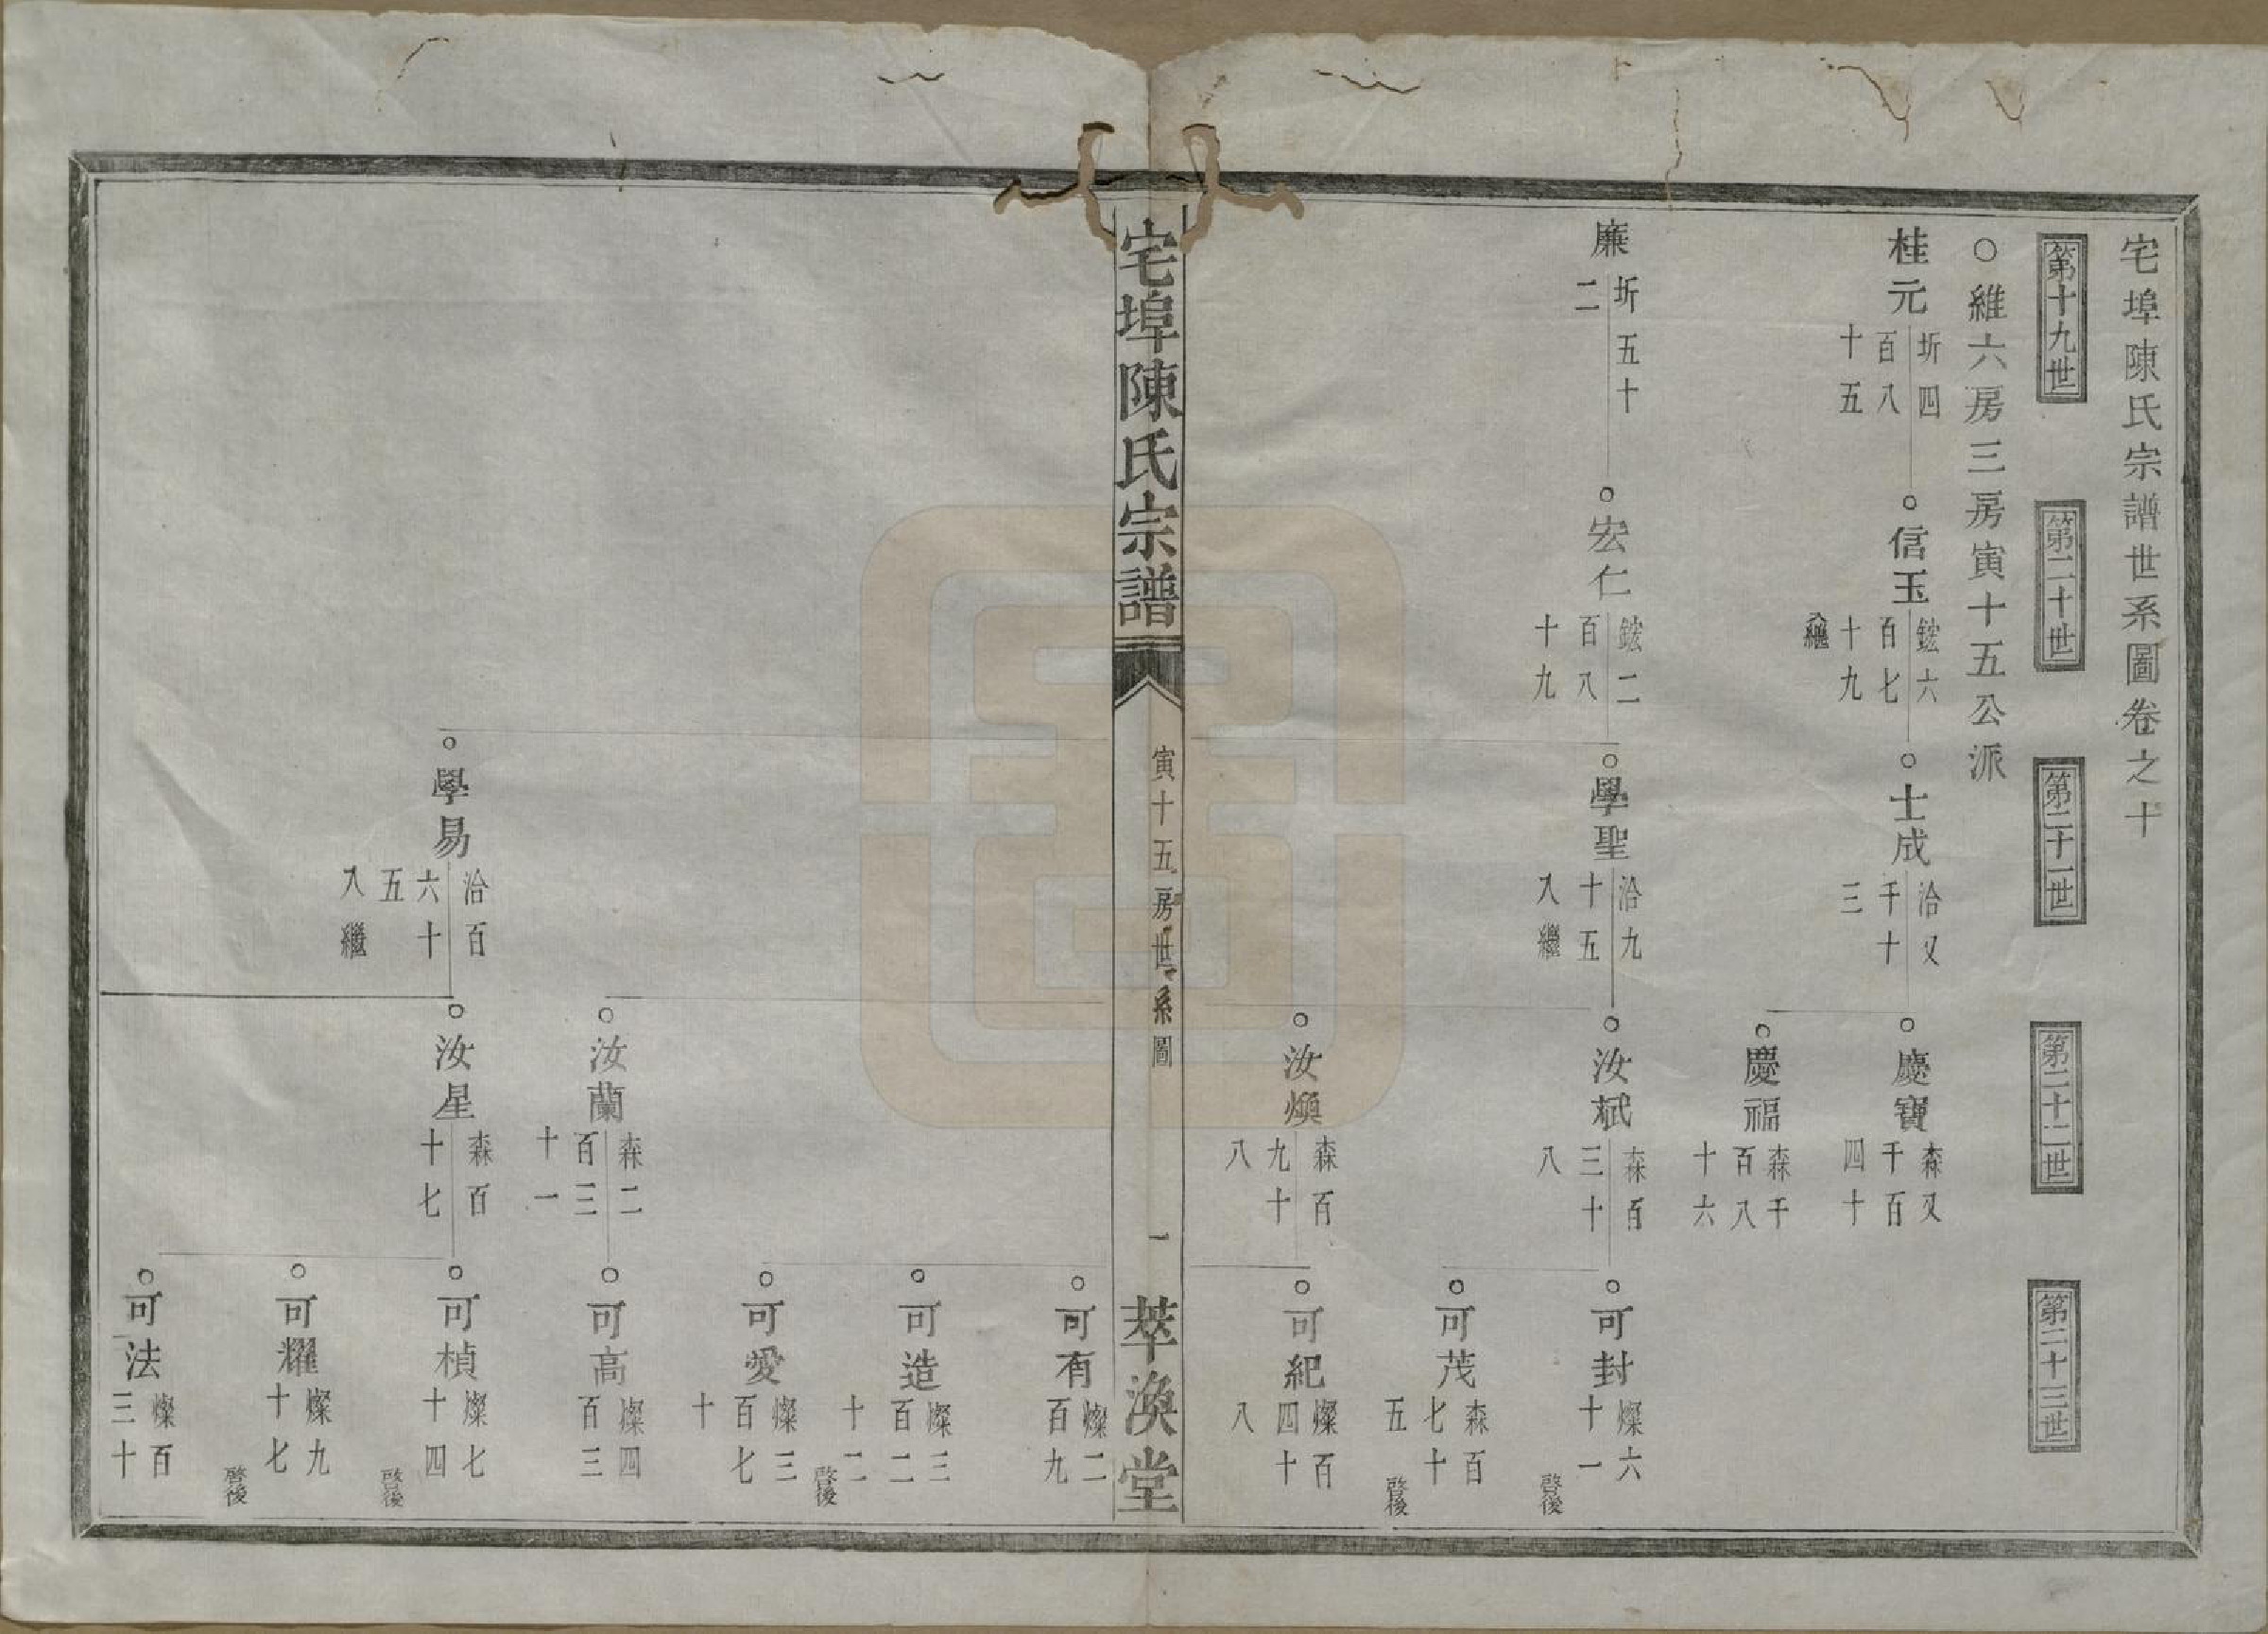 宅埠陳氏宗譜世系圖卷之十
第十九世
第二十世
第二十一世
第二十二世
第二十三世
○維六房三房寅十五公派
桂元
圻四
百八
十五
信玉
鋐六
百七
十九
入繼
士成
洽又
千十
三
慶寶
森又
千百
四十
慶福
森千
百八
十六
廉
圻五十
二
宏仁
鋐二
百八
十九
學聖
洽九
十五
入繼
汝斌
森百
三十
八
可封
燦六
十一
啓後
可茂
森百
七十
五
啓後
汝煥
森百
九十
八
可紀
燦百
四十
八
宅埠陳氏宗譜
寅十五房世系圖
一
萃渙堂
可有
燦二
百九
可造
燦三
百二
十二
啓後
可愛
燦三
百七
十
汝蘭
森二
百三
十一
可高
燦四
百三
學易
洽百
六十
五
入繼
汝星
森百
十七
可楨
燦七
十四
啓後
可耀
燦九
十七
啓後
可法
燦百
三十